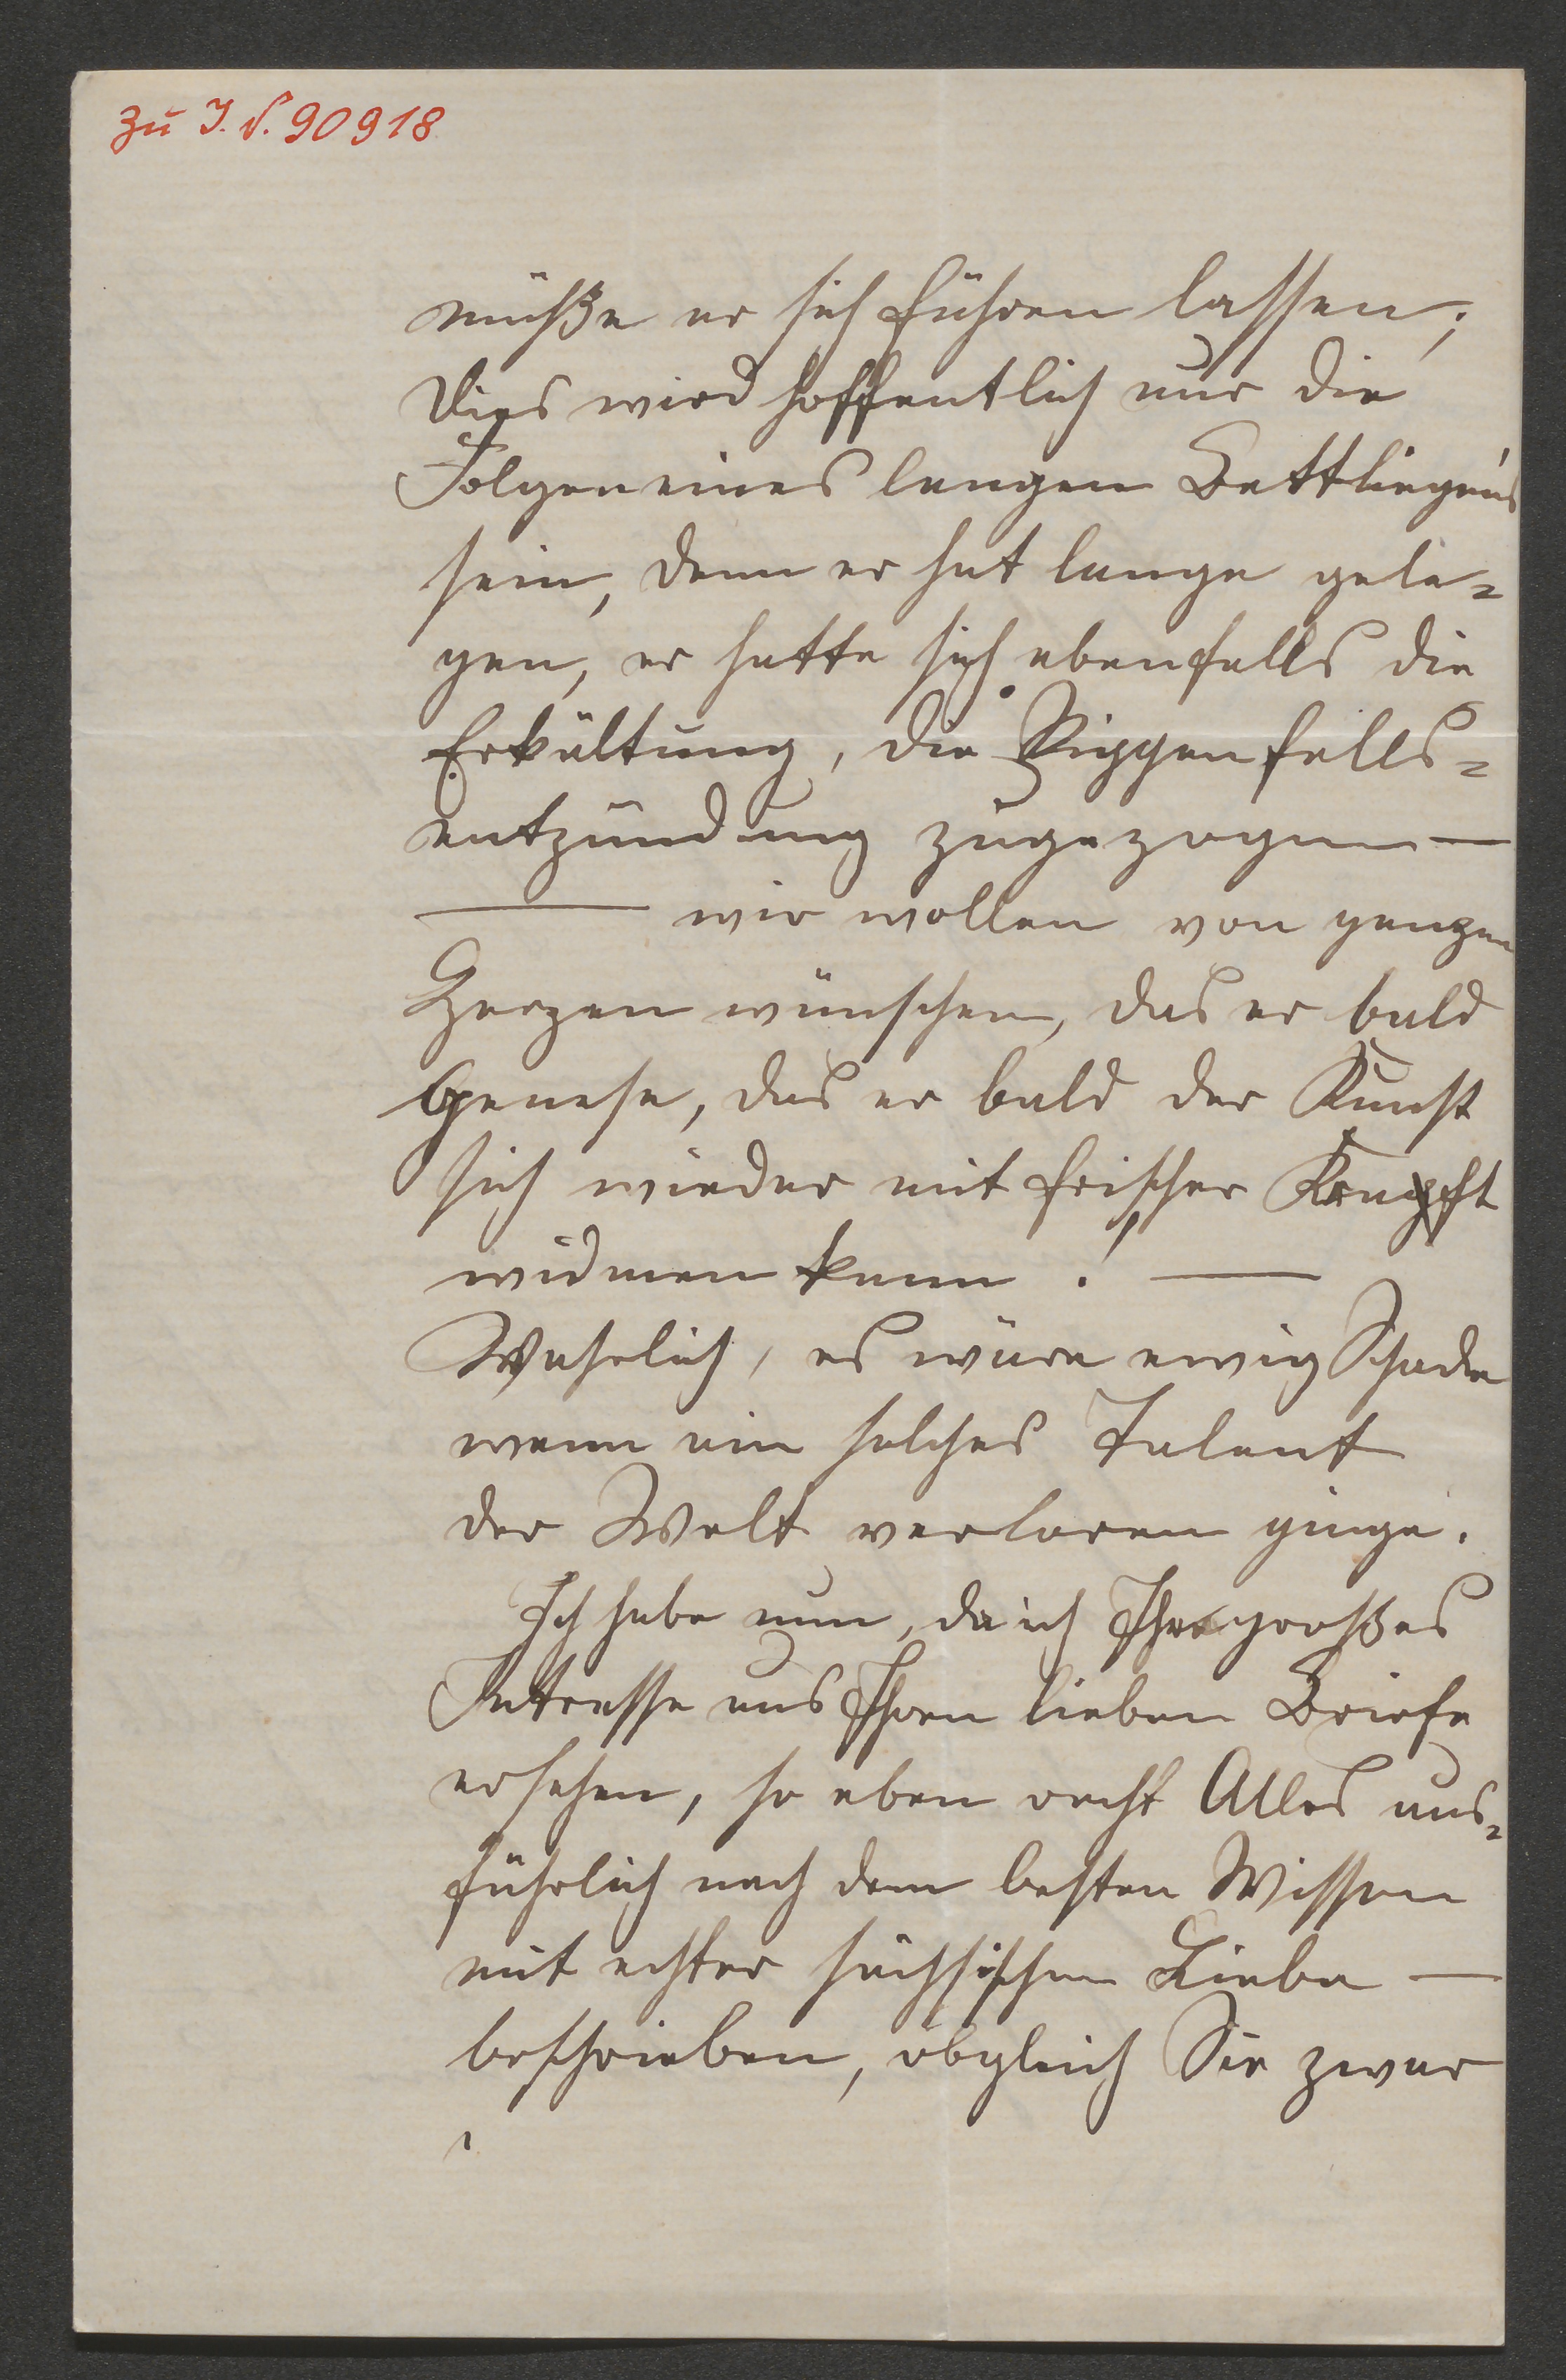 zu J. N. 90918
müße er sich führen lassen;
Dies wird hoffentlich nur die
Folgen eines langen Bettliegen's
sein, denn er hat lange gele=
gen, er hatte sich ebenfalls die
Erkältung, die Rippenfells=
entzündung zugezogen —
— wir wollen von ganzen
Herzen wünschen, das er bald
Genese, das er bald der Kunst
sich wieder mit frischer Kraft
widmen kann! —
Wahrlich, es wäre ewig Schade
wenn ein solches Talent
der Welt verloren ginge.
Ich habe nun, da ich Ihr großes
Intresse aus Ihren lieben Briefe
ersehen, so eben recht Alles aus=
führlich nach dem besten Wissen
mit echter sächsischen Liebe —
beschrieben, obgleich Sie zwar